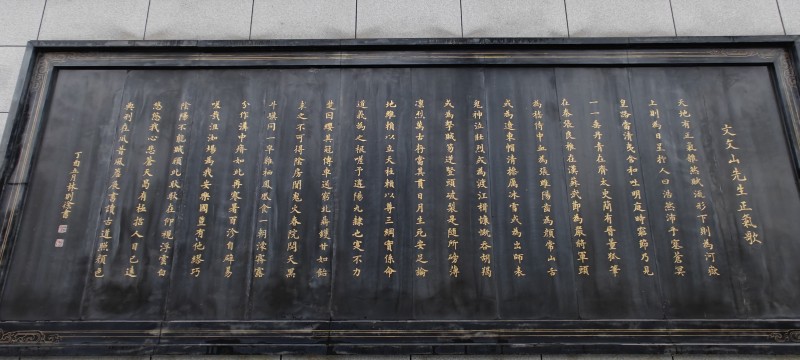 文文山先生正氣歌
天地有正氣雜然賦流形下則為河嶽
上則為日星於人曰浩然沛乎塞蒼冥
皇路當清夷含和吐明庭時窮節乃見
一一垂丹青在齊太史簡在晉董狐筆
在秦張良椎在漢蘇武節為嚴將軍頭
為嵇侍中血為張睢陽齒為顏常山舌
或為遼東帽清操厲冰雪或為出師表
鬼神泣壯烈或為渡江楫慷慨吞胡羯
或為擊賊笏逆豎頭破裂是氣所磅薄
凜烈萬古存當其貫日月生死安足論
地維賴以立天柱賴以尊三綱實係命
道義為之根嗟予遘陽九隸也實不力
楚囚纓其冠傳車送窮北鼎鑊甘如飴
求之不可得陰房闃鬼火春院閟天黑
牛驥同一皁雞棲鳳凰食一朝濛霧露
分作溝中瘠如此再寒暑百沴自辟易
嗟哉沮洳場為我安樂國豈有他繆巧
陰陽不能賊顧此耿耿在仰視浮雲白
悠悠我心悲蒼天曷有極哲人日已遠
典刑在夙昔風簷展書讀古道照顏色
丁酉月林則書